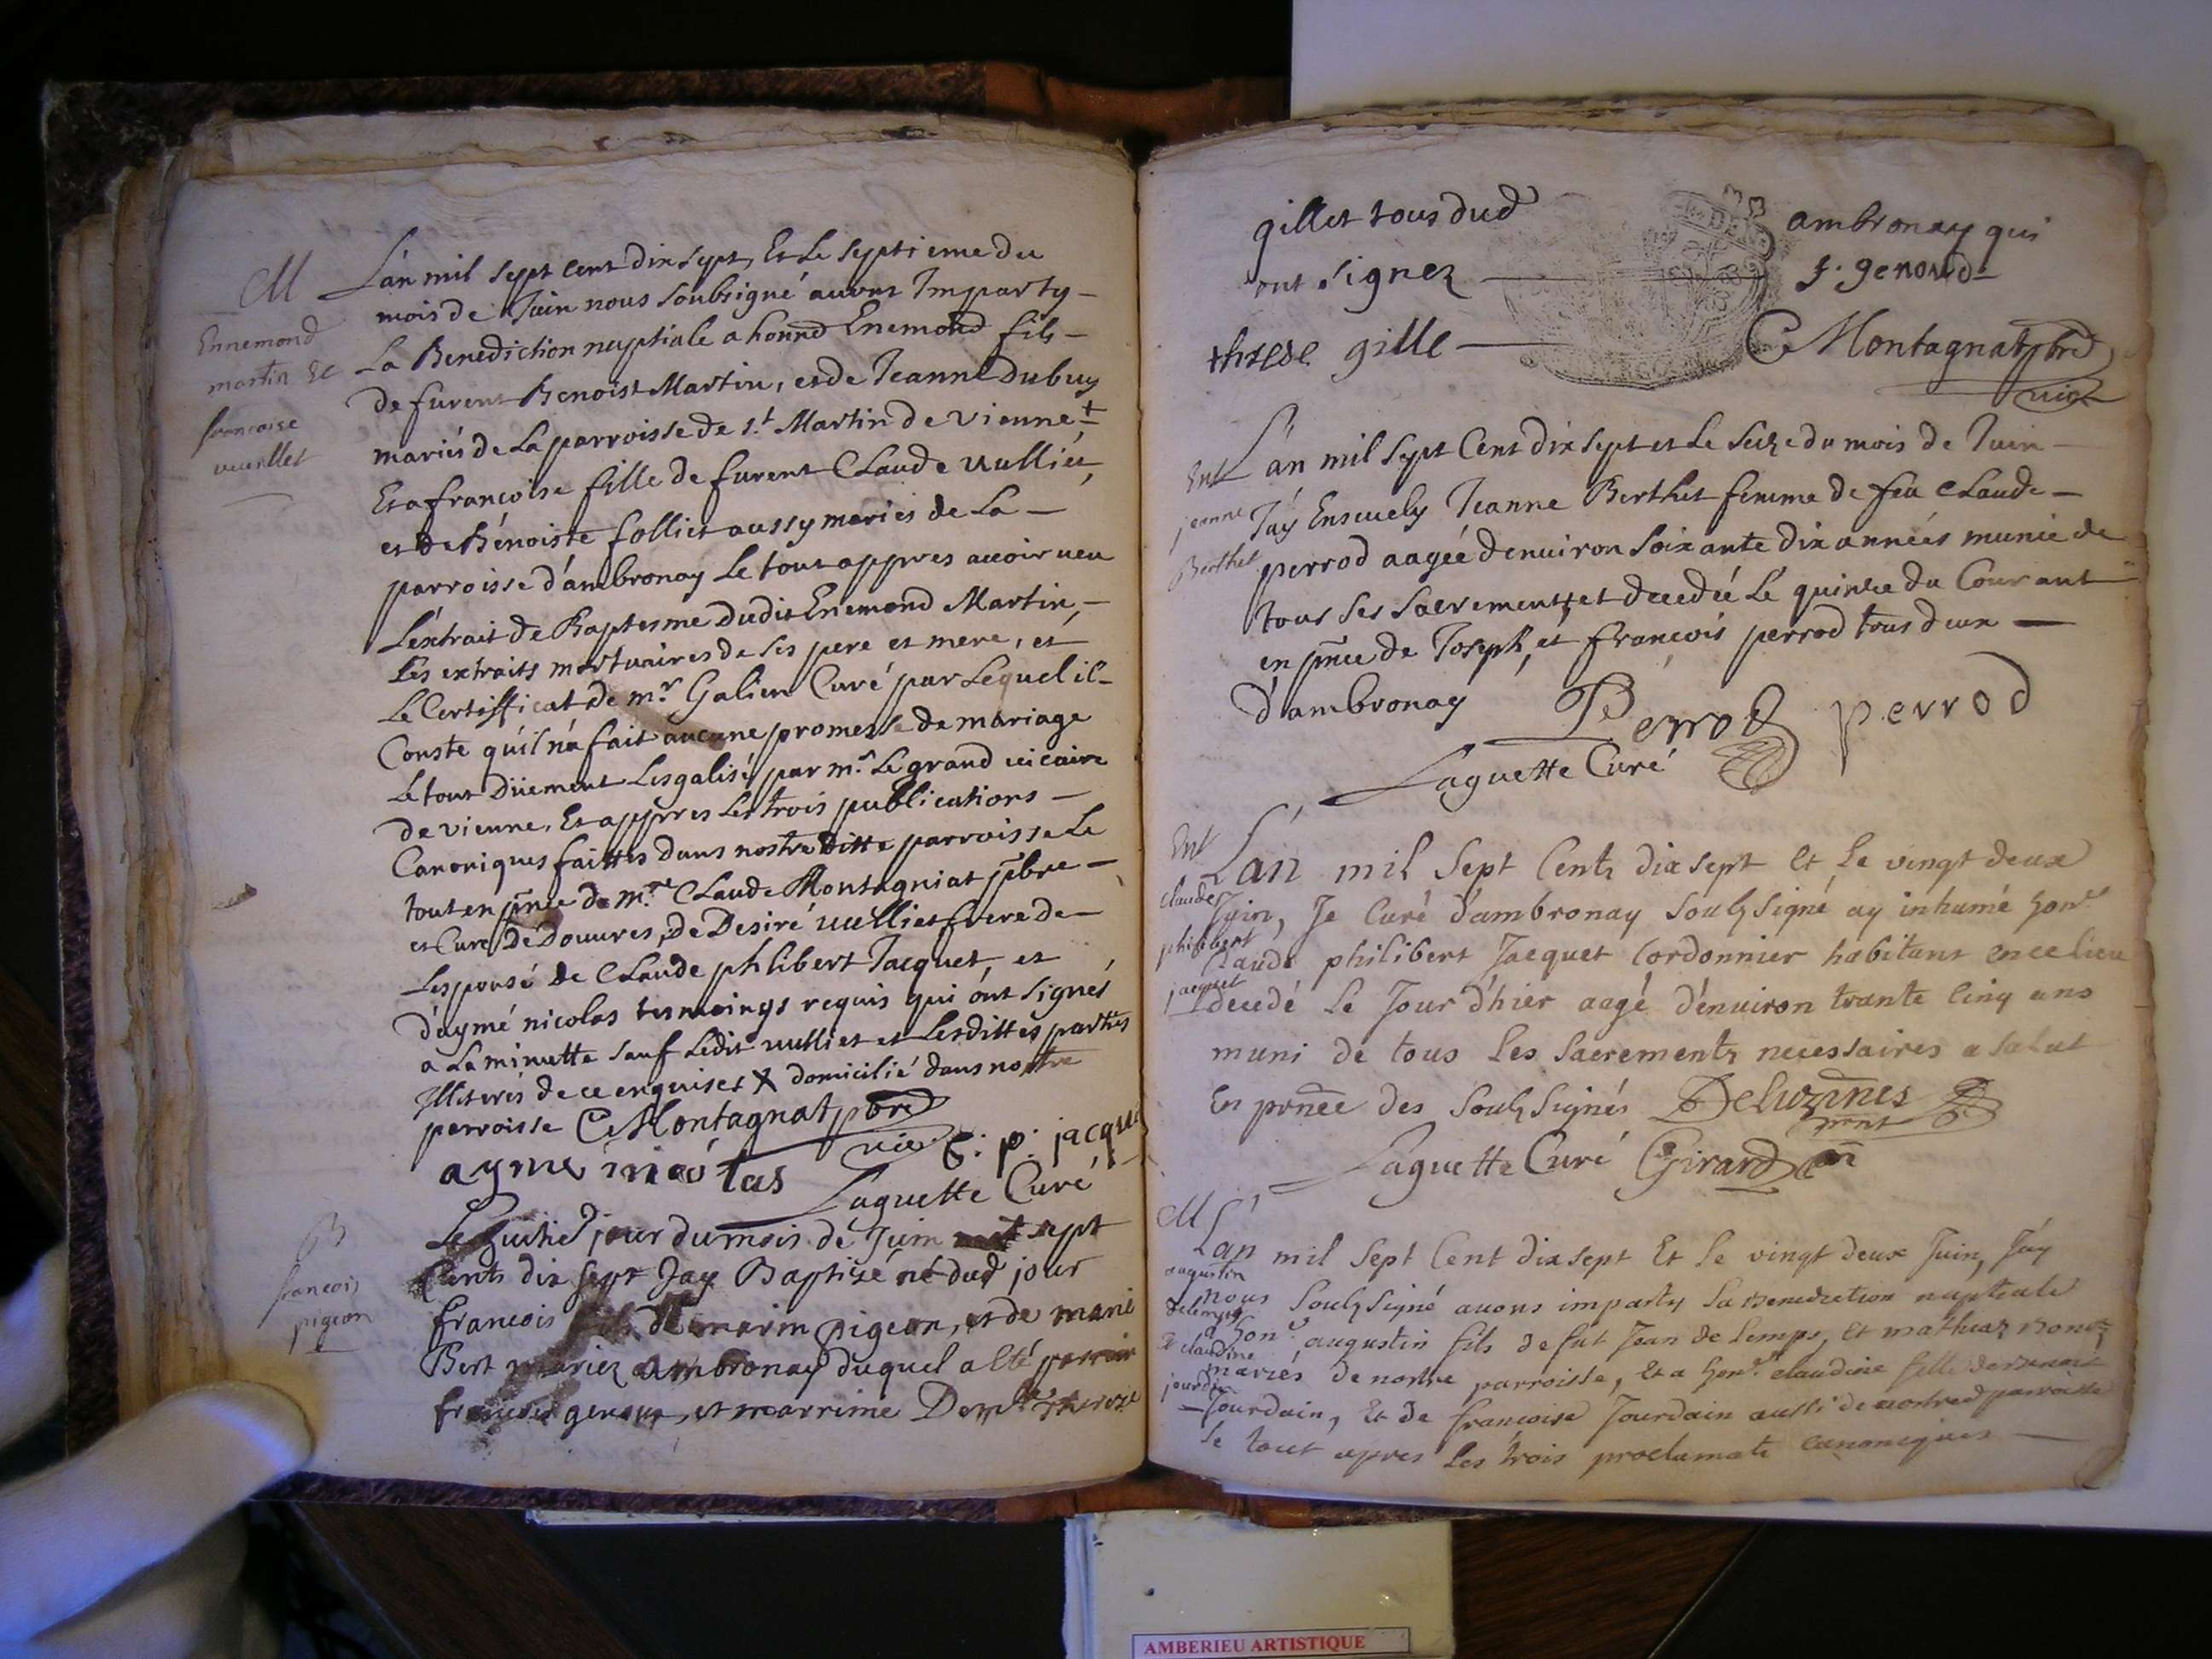 M
Ennemond
martin et
francoise
vuillet
L'an mil sept cent dix sept, Et Le septieme du
mois de Juin nous soubsigné avons Imparty
La Benediction nuptiale a honnd Enemond fils
de furent Benoist Martin, et de Jeanne Dubuy
mariés de La parroisse de s.t Martin de vienne +
Et a françoise fille de furent CLaude vulliet,
et de Bénoiste folliet aussy mariés de La
parroisse d'ambronay Le tout appres avoir veu
L'extrait de Baptesme dudit Enemond Martin,
Les extraits mortuaires de ses pere et mere, et
Le Certifficat de m.r Galien Curé par Lequel il
Conste qu'il n'a fait aucune promesse de mariage
Le tout Düement Lesgalisé par m.r Le grand vicaire
de vienne, Et appres Les trois publications
Canoniques faittes dans nostre ditte parroisse Le
tout en pnce de m.re CLaude Montagniat pbre
et Curé de Douvres, de Desiré vulliet frere de
L'esponsé de CLaude phlibert Jacquet, et
d'aymé nicolas tesmoings requis qui ont signés
a La minutte sauf Ledit vulliet et Lesdittes parties
Illiterés de ce enquises X domicilié dans nostre
perroisse C Montagnat pbre
vic C: p: jacque
ayme nicolas
Laguette Curé
B
francois
pigeon
Le huitie jour du mois de Juin sept
Cents dix sept Jay Baptizé né dud jour
francois fils de marin pigeon, et de marie
Bert mariez ambronay duquel a eté parrin
francois genoux, et marrine Dem.lle therese
gillet tous dud ambronay qui
ont signez f. genoud
threse gille C Montagnat pbre
vic
Ent
jeanne
Berthet
L'an mil sept Cent dix sept et Le seize du mois de Juin
J'ay Ensevely Jeanne Berthet femme de feu CLaude
perrod aagée d'environ soixante dix années munie de
tous ses sacrements, et decedée Le quinze du Courant
en pnce de Joseph, et francois perrod tous deux
d'ambronay Perrod perrod
Laguette Curé
Ent
claude
philibert
jacquet
L'an mil sept Cents dix sept et Le vingt deux
Juin, Je Curé d'ambronay soubsigné ay inhumé hon.
Claude philibert Jacquet Cordonnier habitant en ce lieu
decedé Le Jour d'hier aagé d'environ trante cinq ans
muni de tous Les sacrements necessaires a salut
En prnce des soubsignés Deluzines
Laguette Curé Girard
M
augustin
delemps
et claudine
jourdain
L'an mil sept Cent dix sept Et le vingt deux Juin, J'ay
nous soubsigné avons imparty La Benediction nuptiale
a hon. augustin fils de fut Jean de Lemps, Et mathiaz
mariés de nostre parroisse, Et a hon. claudine fille de
Jourdain, Et de francoise Jourdain aussi de nostred parroisse
Le tout apres les trois proclamati canoniques
AMBERIEU ARTISTIQUE